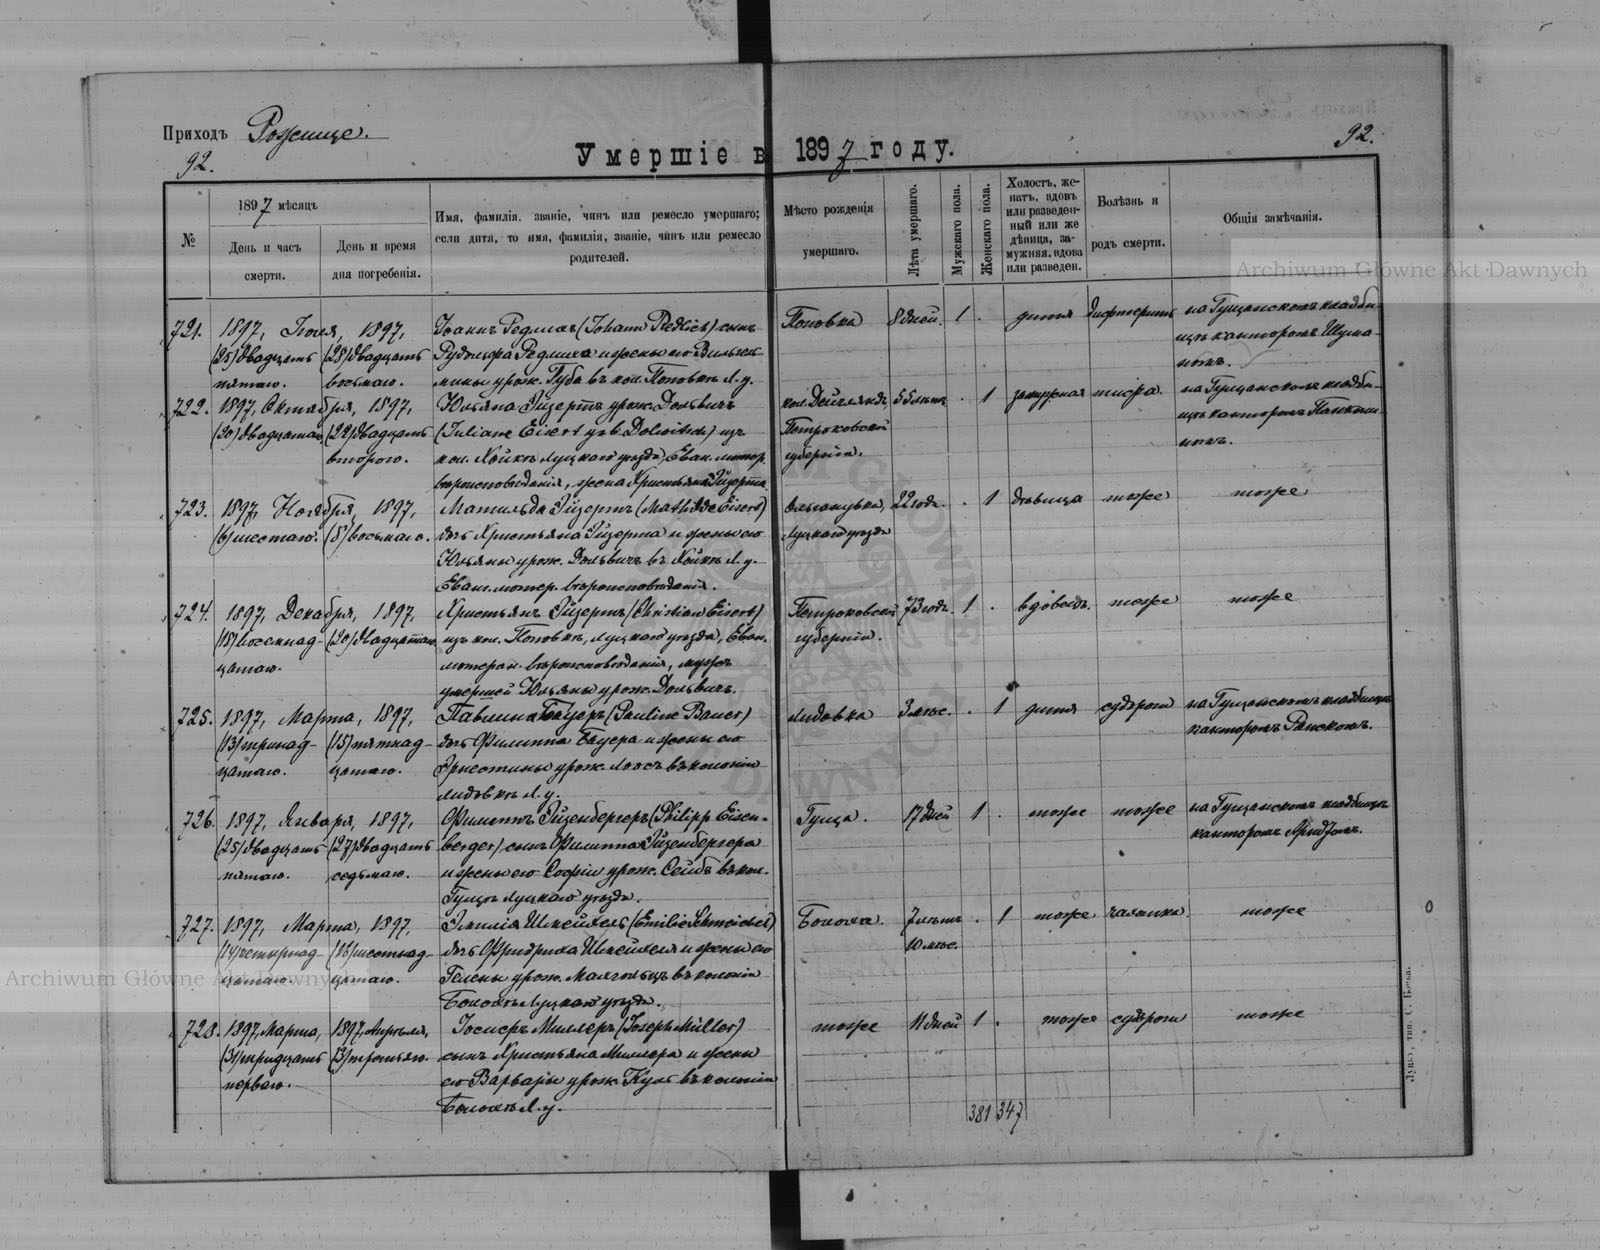 Приходъ Рожище.
92.
92.
Умершіе въ 1897 году.
№
1897 мѣсяцъ
День и часъ смерти.
День и время дня погребенія.
Имя, фамилія, званіе, чинъ или ремесло умершаго;
если дитя, то имя, фамилія, званіе, чинъ или ремесло
родителей.
Мѣсто рожденія
умершаго.
Лѣта умершаго.
Мужскаго пола.
Женскаго пола.
Холостъ, же-
натъ, вдовъ
или разведен-
ный или же
дѣвица, за-
мужняя, вдова
или разведен.
Болѣзнь и
родъ смерти.
Общія замѣчанія.
721. 1897, Іюля, 1897,
(25) двадцать
пятаго.
(28) двадцать
восьмаго.
Іоаннъ Редлихъ (Johann Redlich) сынъ
Рудольфа Редлиха и жены его Вильгель-
мины урож. Губа въ кол. Поповкѣ Л. у.
Поповка
8 дней.
1
дитя
дифтеритъ
на Гущанскомъ кладби-
щѣ канторомъ Шума-
номъ.
722. 1897, Октября, 1897,
(20) двадцатаго
(22) двадцать
второго.
Юльяна Эйзертъ урож. Дольвичъ
(Juliane Eisert geb. Dolwitsch) изъ
кол. Хойкѣ Луцкаго уѣзда, Еван. лютер.
вѣроисповѣданія, жена Христьяна Эйзерта
Петроковской
губерніи.
55 лѣтъ
1
замужняя
тифа.
на Гущанскомъ кладби-
щѣ канторомъ
723. 1897, Ноября, 1897,
(6) шестаго.
(8) восьмаго.
Матильда Эйзертъ (Mathilde Eisert)
дочь Христьяна Эйзерта и жены его
Юльяны урож. Дольвичъ въ Хойкѣ Л. у.
Еванг. лютер. вѣроисповѣданія.
Луцкаго уѣзда
22 годъ.
1
дѣвица
тоже
тоже
724. 1897, Декабря, 1897,
(18) восемнад-
цатаго.
(20) двадцатаго.
Христьянъ Эйзертъ (Christian Eisert)
изъ кол. Поповкѣ, Луцкаго уѣзда, Еван.
лютеран. вѣроисповѣданія, мужъ
умершей Юльяны урож. Дольвичъ.
Петроковской
губерніи.
73 годъ.
1
вдовецъ.
тоже
тоже
725. 1897, Марта, 1897,
(13) тринад-
цатаго.
(15) пятнад-
цатаго.
Павлина Бауеръ (Pauline Bauer)
дочь Филиппа Бауера и жены его
урож. въ колоніи
Лидовкѣ Л. у.
Лидовка
3 мѣс.
1
дитя
судороги
на Гущанскомъ кладбищѣ
канторомъ
726. 1897, Января, 1897,
(25) двадцать
пятаго.
(27) двадцать
седьмаго.
Филиппъ Эйзенбергеръ (Philipp Eisen-
berger) сынъ Филиппа Эйзенбергера
и жены его Софіи урож. Сейбъ въ кол.
Гущѣ Луцкаго уѣзда.
Гуща.
17 дней
1
тоже
тоже
на Гущанскомъ кладбищѣ
канторомъ
727. 1897, Марта, 1897,
(14) четырнад-
цатаго.
(16) шестнад-
цатаго.
Эмилія Шмейхель (Emilie Schmeichel)
дочь Фридриха Шмейхеля и жены его
Гелены урож. въ колоніи
Луцкаго уѣзда.
7 лѣтъ
10 мѣс.
1
тоже
чахотка
тоже
728. 1897, Марта,
(31) тридцать
перваго.
1897, Апрѣля,
(3) третьяго.
Іосифъ Миллеръ (Joseph Müller)
сынъ Христьяна Миллера и жены
его Варвары урож. въ колоніи
Л. у.
тоже
11 дней
1
тоже
судороги
тоже
381 347
Archiwum Główne Akt Dawnych
Archiwum Główne Akt Dawnych